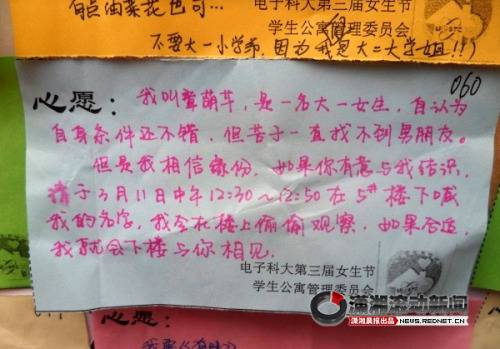 有点油菜花也可...
电子科大第三届女生节
学生公寓管理委员会
不要大一小学弟,因为我是大二大学姐!!)
060
心愿:我叫龚萌芊,是一名大一女生,自认为
自身条件还不错,但苦于一直找不到男朋友。
但是我相信缘份,如果你有意与我结识,
请于3月11日中午12:30~12:50在5#楼下喊
我的名字,我会在楼上偷偷观察,如果合适,
我就会下楼与你相见。
电子科大第三届女生节
学生公寓管理委员会
潇湘滚动新闻
潇湘晨报出品 NEWS.REDNET.CN
心愿: